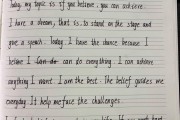 Today, my topic is if you believe, you can achieve.
I have a dream, that is to stand on the stage and
give a speech. Today, I have the chance because I
believe I can do everything. I can achieve
anything I want. I am the best. The belief guides me
everyday. It help me face the challenges.